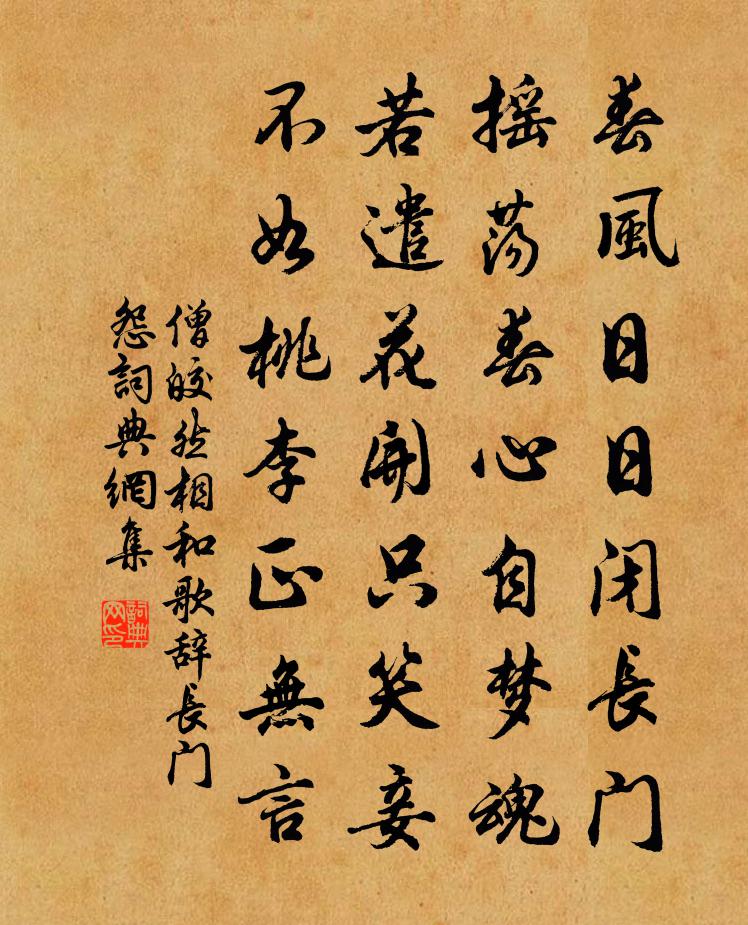 春風日日闭長门
摇荡春心自梦魂
若遣花開只笑妾
不如桃李正無言
僧皎然相和歌辞長门
怨詞典網集
詞典网印